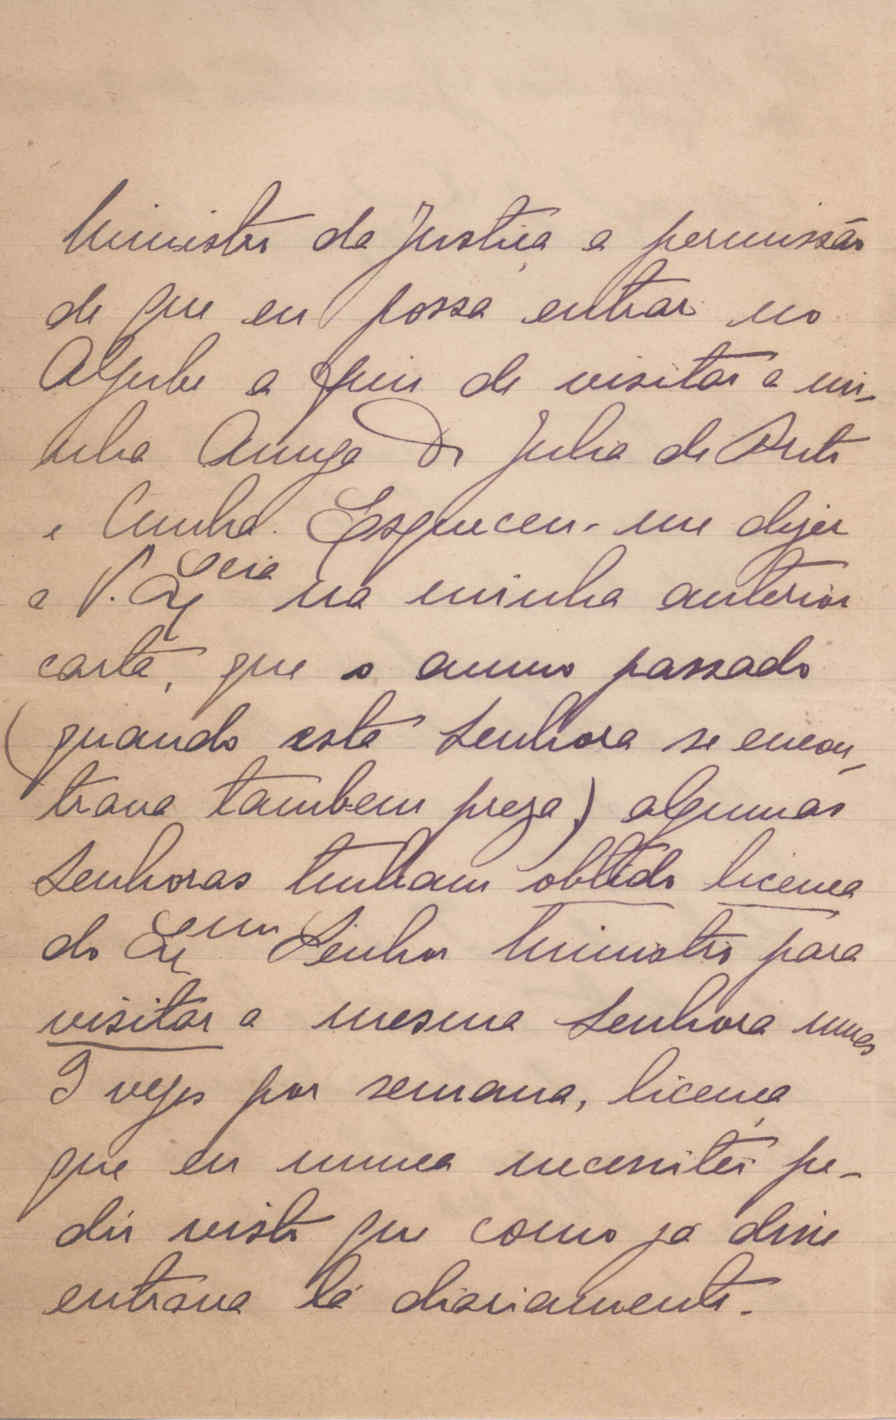 Ministro da Justiça a permissão
de que eu possa entrar no
Aljube a fim de visitar a mi-
nha Amiga D. Julia de Brito
e Cunha. Esqueceu-me dizer
a V. Excia na minha anterior
carta, que o anno passado
(quando esta Senhora se encon-
trava tambem preza) algumas
Senhoras tinham obtido licença
do Exmo Senhor Ministro para
visitar a mesma Senhora umas
vezes por semana, licença
que eu nunca necessitei pe-
dir visto que como já disse
entrava lá diariamente.